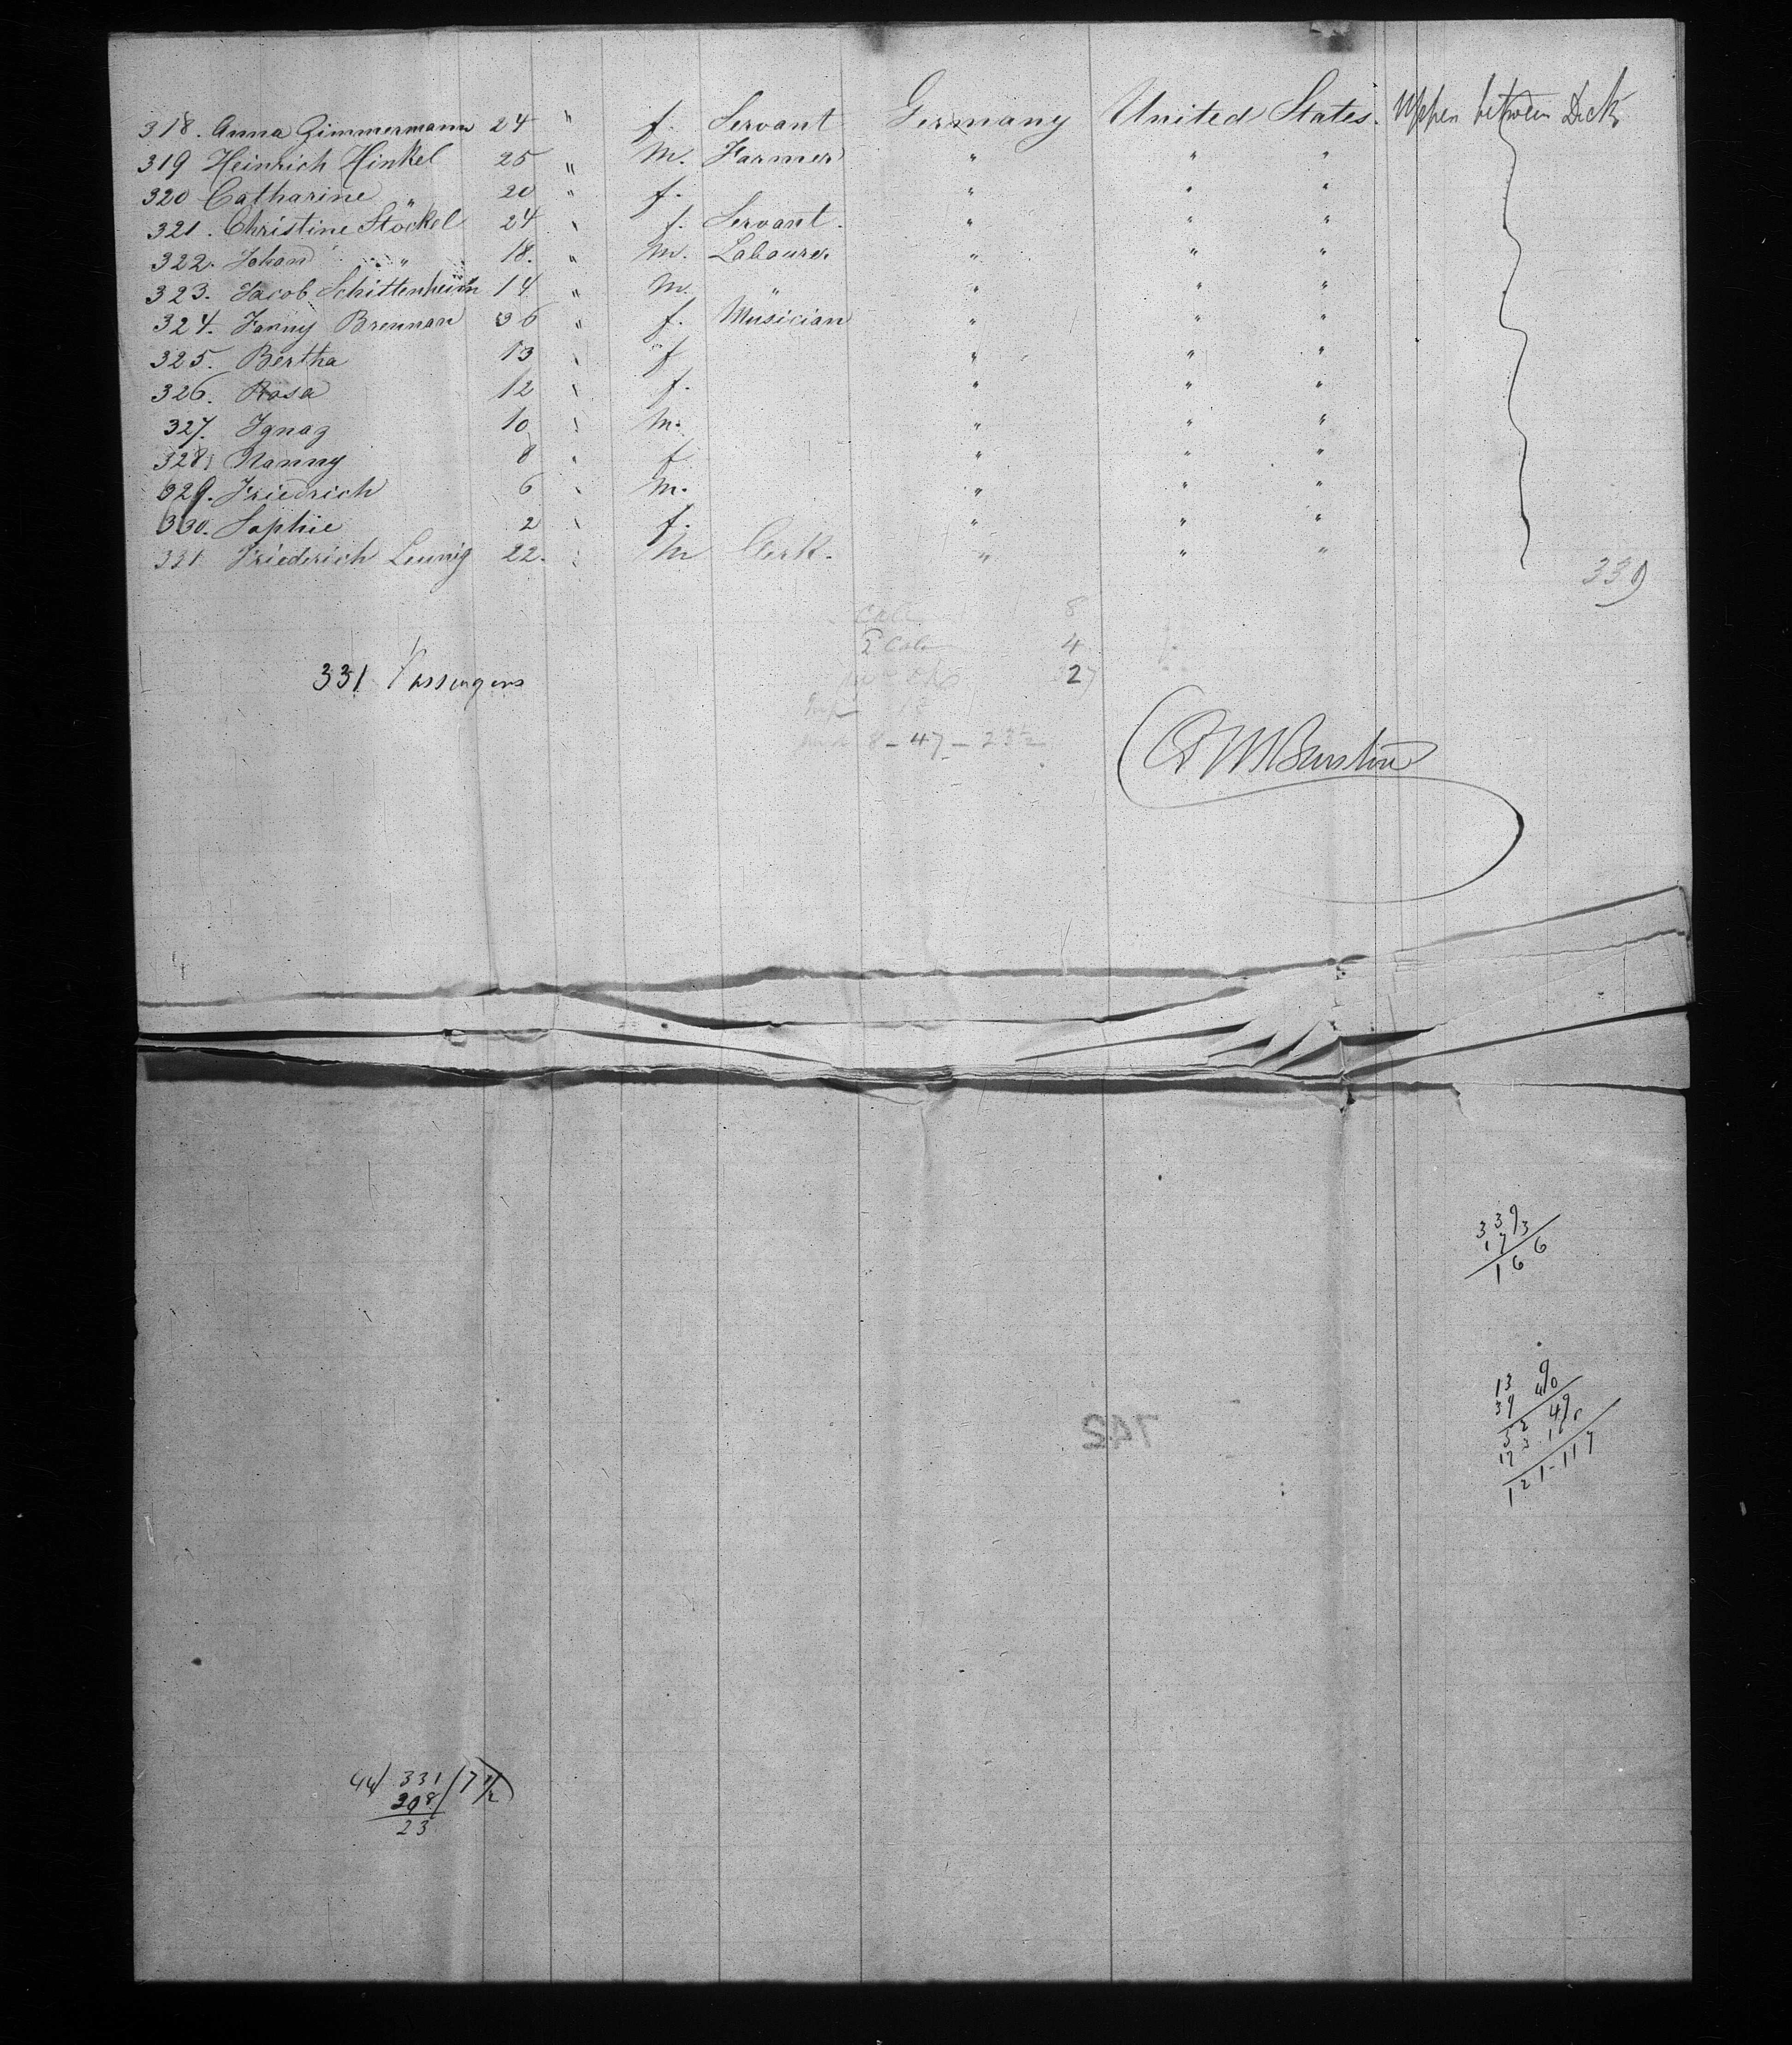 318. Anna Zimmermann 24 " f. Servant Germany United States. Upper between Deck
319 Heinrich Hinkel 25 " M. Farmer " " "
320 Catharine " 20 " f. " " "
321. Christine Stöckel 24 " f. Servant. " " "
322. Johan " 18. " M. Labourer " " "
323. Jacob Schittenheim 14 " M. " " " "
324. Fanny Brennan 36 " f. Musician " " "
325. Bertha 13 " f " " "
326. Rosa 12 " f. " " "
327. Ignaz 10 " M. " " "
328. Nanny 8 " f " " "
329. Friedrich 6 " M. " " "
330. Sophie 2 " f. " " "
331 Friederich Leunig 22. " M Clerk. " " "
339
8
4
331 Passengers
327
8 - 47 - 23½
339
173
166
13 9
39 40
52 49
121-117
TA2
44/ 331 /7½
308
23